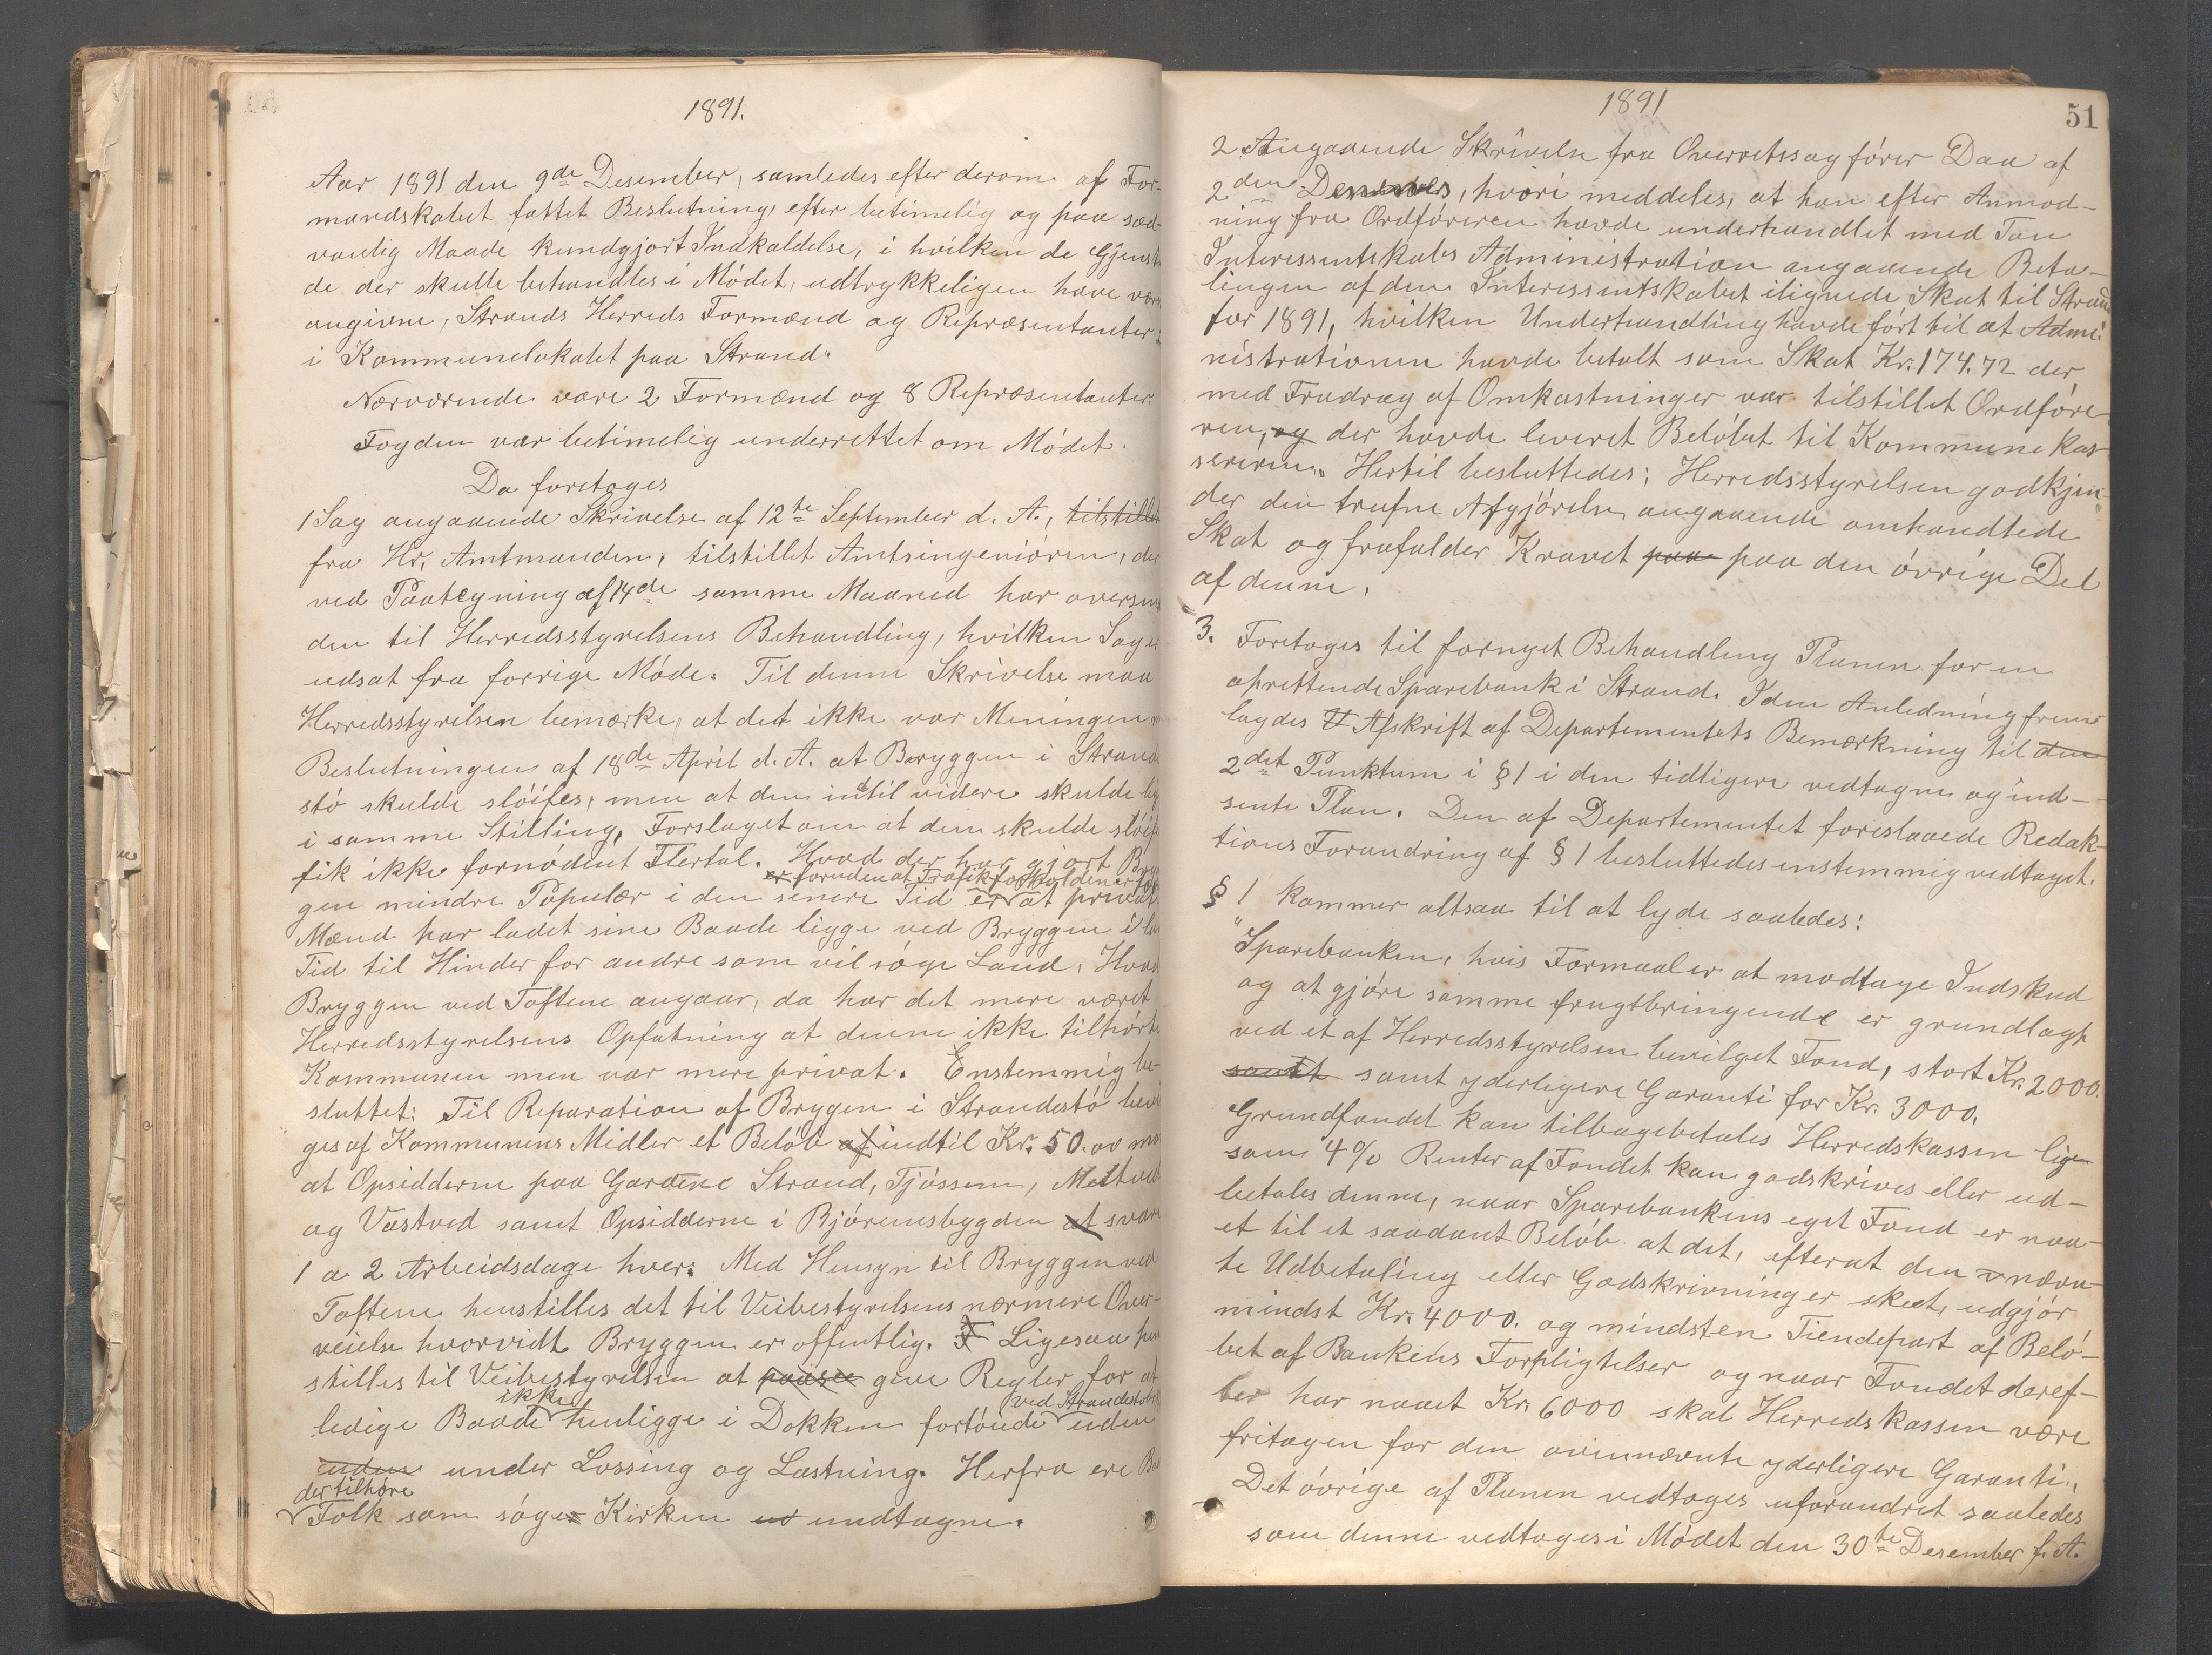 1891.
Aar 1891 den 9de Desember, samledes efter derom af For-
mandskabet fattet Beslutning, efter betimelig og paa sæd-
vanlig Maade kundgjort Indkaldelse, i hvilken de Gjenst
de der skulle behandles i Mödet, udtrykkeligen have være
angivne, Strands Herreds Formænd og Repræsentanter
i Kommunelokalet paa Strand.
Nærværende vare 2 Formænd og 8 Repræsentanter.
Fogden var betimelig underrettet om Mödet.
Da foretoges
1 Sag angaaende Skrivelse af 12te September d. A., tilstillet
fra Hr. Amtmanden, tilstillet Amtsingeniören, der
ved Paategning af 14de samme Maaned har oversen
den til Herredsstyrelsens Behandling, hvilken Sag er
udsat fra forrige Möde. Til denne Skrivelse maa
Herredsstyrelsen bemærke, at det ikke var Meningen
Beslutningen af 18de April d. A. at Beryggen i Strand
stö skulde slöifes, men at den indtil videre skulde lig
i samme Stilling, Forslaget om at den skulde slöif
fik ikke fornödent Flertal. Hvad der har gjort Bryg
er foruden at Trafikforholdene er for
gen mindre Populær i den senere Tid er at privat
Mænd har ladet sine Baade ligge ved Bryggen i la
Tid til Hinder for andre som vil söge Land. Hvad
Bryggen ved Toftene angaar, da har det mere været
Herredsstyrelsens Opfatning at denne ikke tilhörte
Kommunen men var mere privat. Enstemmig be-
sluttet: Til Reparation af Brygen i Strandestö bevil
ges af Kommunens Midler et Belöb af indtil Kr. 50. mo
at Opsidderne paa Gardene Strand, Tjössem,
og Vastved samt Opsidderne i Björensbygden at svare
1 a 2 Arbeidsdage hver. Med Hensyn til Bryggen ved
Toftene henstilles det til Veibestyrelsens nærmere Over-
veielse hvorvidt Bryggen er offentlig. F Ligesaa hen
stilles til Veibestyrelsen at paase give Regler for at
ikke ved Strandestö
ledige Baade henligge i Dokken fortöiede uden
uden under Lossing og Lastning. Herfra ere Ba
der tilhöre
Folk som söger Kirken undtagne.
1891
51
2 Angaaende Skrivelse fra Overretssagförer Daa af
2den Desember, hvori meddeles, at han efter Anmod-
ning fra Ordföreren havde underhandlet med Tau
Interessentskabs Administration angaaende Beta-
lingen af den Interessentskabet ilignede Skat til Strand
for 1891, hvilken Underhandling havde fört til at Admi-
nistrationen havde betalt som Skat Kr. 174.72 der
med Fradrag af Omkostninger var tilstillet Ordföre-
ren, og der havde leveret Belöbet til Kommunekas-
sereren. Hertil besluttedes: Herredsstyrelsen godkjen-
der den trufne Afgjörelse angaaende omhandlede
Skat og frafalder Kravet paa paa den övrige Del
af denne.
3. Foretoges til fornyet Behandling Planen for en
oprettende Sparebank i Strand. I den Anledning frem-
lagdes Afskrift af Departementets Bemærkning til den
2det Punktum i § 1 i den tidligere vedtagne og ind-
sente Plan. Den af Departementet foreslaaede Redak-
tions Forandring af § 1 besluttedes enstemmig vedtaget.
§ 1 kommer altsaa til at lyde saaledes:
"Sparebanken, hvis Formaal er at modtage Indskud
og at gjöre samme frugtbringende er grundlagt
ved et af Herredsstyrelsen bevilget Fond, stort Kr. 2000.
samt samt yderligere Garanti for Kr. 3000.
Grundfondet kan tilbagebetales Herredskassen lige
som 4% Renter af Fondet kan godskrives eller ud-
betales denne, naar Sparebankens eget Fond er naa-
et til et saadant Belöb at det, efterat den nævn-
te Udbetaling eller Godskrivning er skeet, udgjör
mindst Kr. 4000. og mindst en Tiendepart af Belö-
bet af Bankens Forpligtelser og naar Fondet deref-
ter har naaet Kr. 6000 skal Herredskassen være
fritagen for den ovennævnte yderligere Garanti.
Det övrige af Planen vedtoges uforandret saaledes
som denne vedtoges i Mödet den 30te Desember f. A.